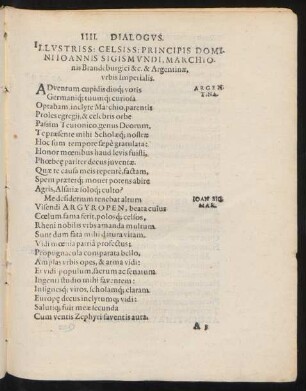 IIII. DIALOGVS.
ILLVSTRISS: CELSISS: PRINCIPIS DOMI-
NI IOANNIS SIGISMVNDI, MARCHIO
nis Brandeburgici &c. & Argentinæ,
vrbis Imperialis.
ADventum cupidis diuq; votis
ARGEN-
TINA.
Germaniq; tuumq; curiosa
Optabam, inclyte Marchio, parentis
Proles egregij, & celebris orbe
Passim Teutonico, genus Deorum,
Te præsente mihi Scholæq; nostræ
Hoc sum tempore sæpè gratulata:
Honor mœnibus haud leuis fuisti,
Phœbeę pariter decus juventæ.
Quæ te causa meis repentè, factam,
Spem præterq; mouet potens abire
Agris, Alsatiæ soloq; culto?
Me desiderium tenebat altum
IOAN SIG
MAR.
Visendi ARGYROPEN, beata cuius
Cœlum fama ferit, polosq; celsos,
Rheni nobilis vrbs amanda multum.
Sunt dum fata mihi quæ tura viram,
Vidi mœnia patriâ profectus;
Propugnacula comparata bello,
Amplas vrbis opes, & arma vidi:
Et vidi populum, sacrum ac senatum.
Ingenti studio mihi faventem:
Insignesq; viros, scholamq; claram.
Europę decus inclytumq; vidi:
Salutiq; fuit meæ secunda
Cum ventis Zephyri faventis aura.